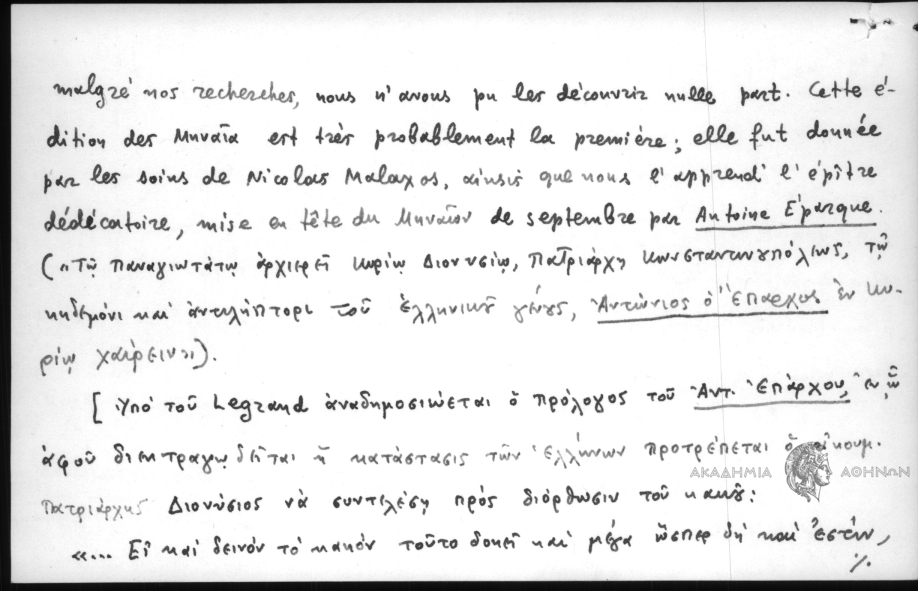 malgré nos recherches, nous n'avons pu les découvrir nulle part. Cette é-
dition des Μηναῖα est très probablement la première; elle fut donnée
par les soins de Nicolas Malaxos, ainsi que nous l'apprend l'épître
dédicatoire, mise en tête du Μηναῖον de septembre par Antoine Éparque.
(«Τῷ παναγιωτάτῳ ἀρχιερεῖ κυρίῳ Διονυσίῳ, Πατριάρχῃ Κωνσταντινουπόλεως, τῷ
κηδεμόνι καὶ ἀντιλήπτορι τοῦ ἑλληνικοῦ γένους, Ἀντώνιος ὁ Ἔπαρχος ἐν Κυ-
ρίῳ χαίρειν»).
[Ὑπό τοῦ Legrand ἀναδημοσιεύεται ὁ πρόλογος τοῦ Ἀντ. Ἐπάρχου, ἐν ᾧ
ἀφοῦ διεκτραγῳδεῖται ἡ κατάστασις τῶν Ἑλλήνων προτρέπεται ὁ οἰκουμ.
Πατριάρχης Διονύσιος νὰ συντελέσῃ πρός διόρθωσιν τοῦ κακοῦ:
«... Εἰ καί δεινόν τό κακόν τοῦτο δοκεῖ καί μέγα ὥσπερ δή καί ἐστίν,
./.
ΑΚΑΔΗΜΙΑ ΑΘΗΝΩΝ